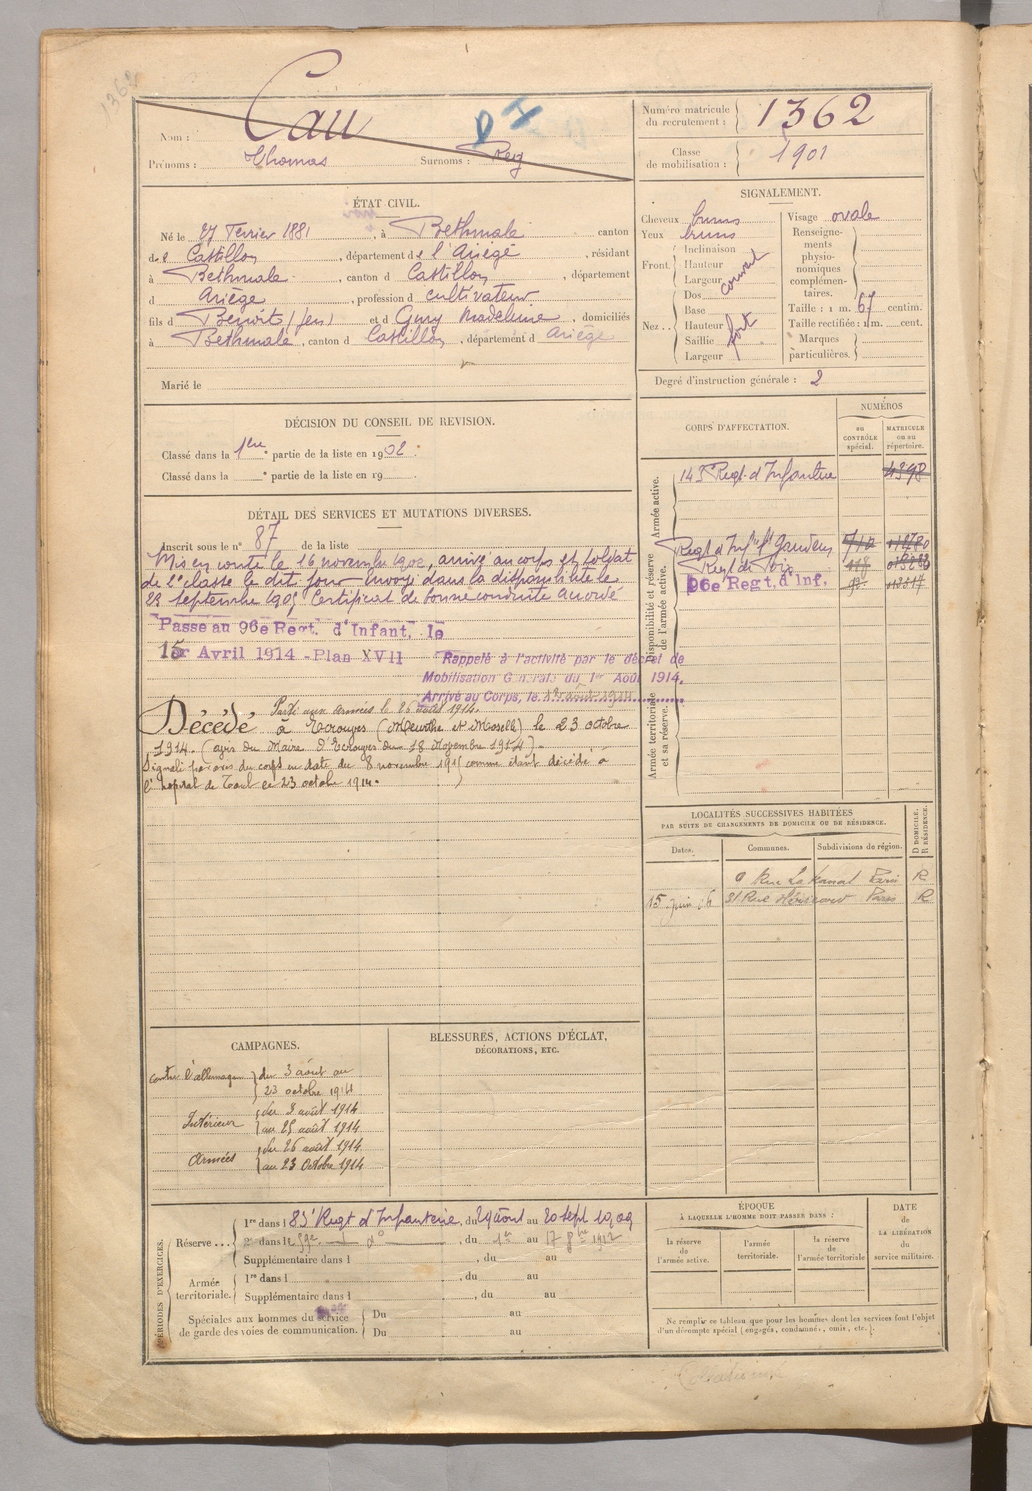 1362
Nom : Cau
Prénoms : Thomas Surnoms : Rey
D I
Numéro matricule du recrutement : 1362
Classe de mobilisation : 1901
ÉTAT CIVIL.
Né le 27 Février 1881, à Bethmale canton
de Castillon, département de l'Ariège, résidant
à Bethmale, canton d Castillon, département
d Ariège, profession d cultivateur
fils d Benoit (feu) et d Gury Madeleine, domiciliés
à Bethmale, canton d Castillon, département d Ariège
Marié le
SIGNALEMENT.
Cheveux bruns
Yeux bruns
Front. Inclinaison
Hauteur
Largeur
couvert
Nez.. Dos
Base
Hauteur
Saillie
Largeur
fort
Visage ovale
Renseignements physionomiques complémentaires.
Taille : 1 m. 67 centim.
Taille rectifiée : 1 m. cent.
Marques particulières.
Degré d'instruction générale : 2
DÉCISION DU CONSEIL DE REVISION.
Classé dans la 1ère partie de la liste en 1902.
Classé dans la e partie de la liste en 19
DÉTAIL DES SERVICES ET MUTATIONS DIVERSES.
Inscrit sous le n° 87 de la liste
Mis en route le 16 novembre 1902, arrivé au corps et soldat
de 2e classe le dit jour envoyé dans la disponibilité le
23 Septembre 1905 Certificat de bonne conduite accordé
Passé au 96e Regt. d'Infant. le
15 Avril 1914 - Plan XVII
Rappelé à l'activité par le décret de
Mobilisation Générale du 1er Août 1914.
Arrivé au Corps, le août 1914
Parti aux armées le 26 août 1914.
Décédé à Ecrouves (Meurthe et Moselle) le 23 octobre
1914. (avis du Maire d'Ecrouves du 18 Novembre 1914).
Signalé par avis du corps en date du 8 novembre 1915 comme étant décédé à
l'hopital de Toul le 23 octobre 1914.
CORPS D'AFFECTATION.
NUMÉROS
au CONTRÔLE spécial.
MATRICULE ou au répertoire.
Armée active.
143e Regt. d'Infanterie 4398
Disponibilité et réserve de l'armée active.
Regt d'Inftie St Gaudens
Regt de Foix
96e Regt. d'Inf.
Armée territoriale et sa réserve.
LOCALITÉS SUCCESSIVES HABITÉES
PAR SUITE DE CHANGEMENTS DE DOMICILE OU DE RÉSIDENCE.
Dates. Communes. Subdivisions de région. D DOMICILE. R RÉSIDENCE.
Rue Lakanal Paris R
15 Juin 31 Rue Paris R
CAMPAGNES.
contre l'allemagne du 3 août au
23 octobre 1914
Intérieur du 3 août 1914
au 25 août 1914
Armées du 26 août 1914
au 23 Octobre 1914
BLESSURES, ACTIONS D'ÉCLAT,
DÉCORATIONS, ETC.
PÉRIODES D'EXERCICES.
Réserve... 1re dans l 83e Regt d'Infanterie, du 29 août au 20 sept 1909
2e dans le 59e d°, du 1er au 17 8bre 1912
Supplémentaire dans l , du au
Armée territoriale. 1re dans l , du au
Supplémentaire dans l , du au
Spéciales aux hommes du service
de garde des voies de communication. Du au
Du au
ÉPOQUE
À LAQUELLE L'HOMME DOIT PASSER DANS :
la réserve de l'armée active.
l'armée territoriale.
la réserve de l'armée territoriale
DATE de LA LIBÉRATION du service militaire.
Ne remplir ce tableau que pour les hommes dont les services font l'objet
d'un décompte spécial (engagés, condamné, omis, etc.).